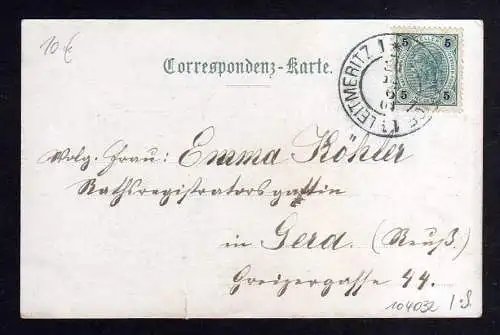 10 €
Correspondenz-Karte.
5 5
5 5
LEITMERITZ 1
Wolg. Frau: Emma Köhler
Rathsregistratorsgattin
in Gera. (Reuß.)
Greizergasse 44.
104032